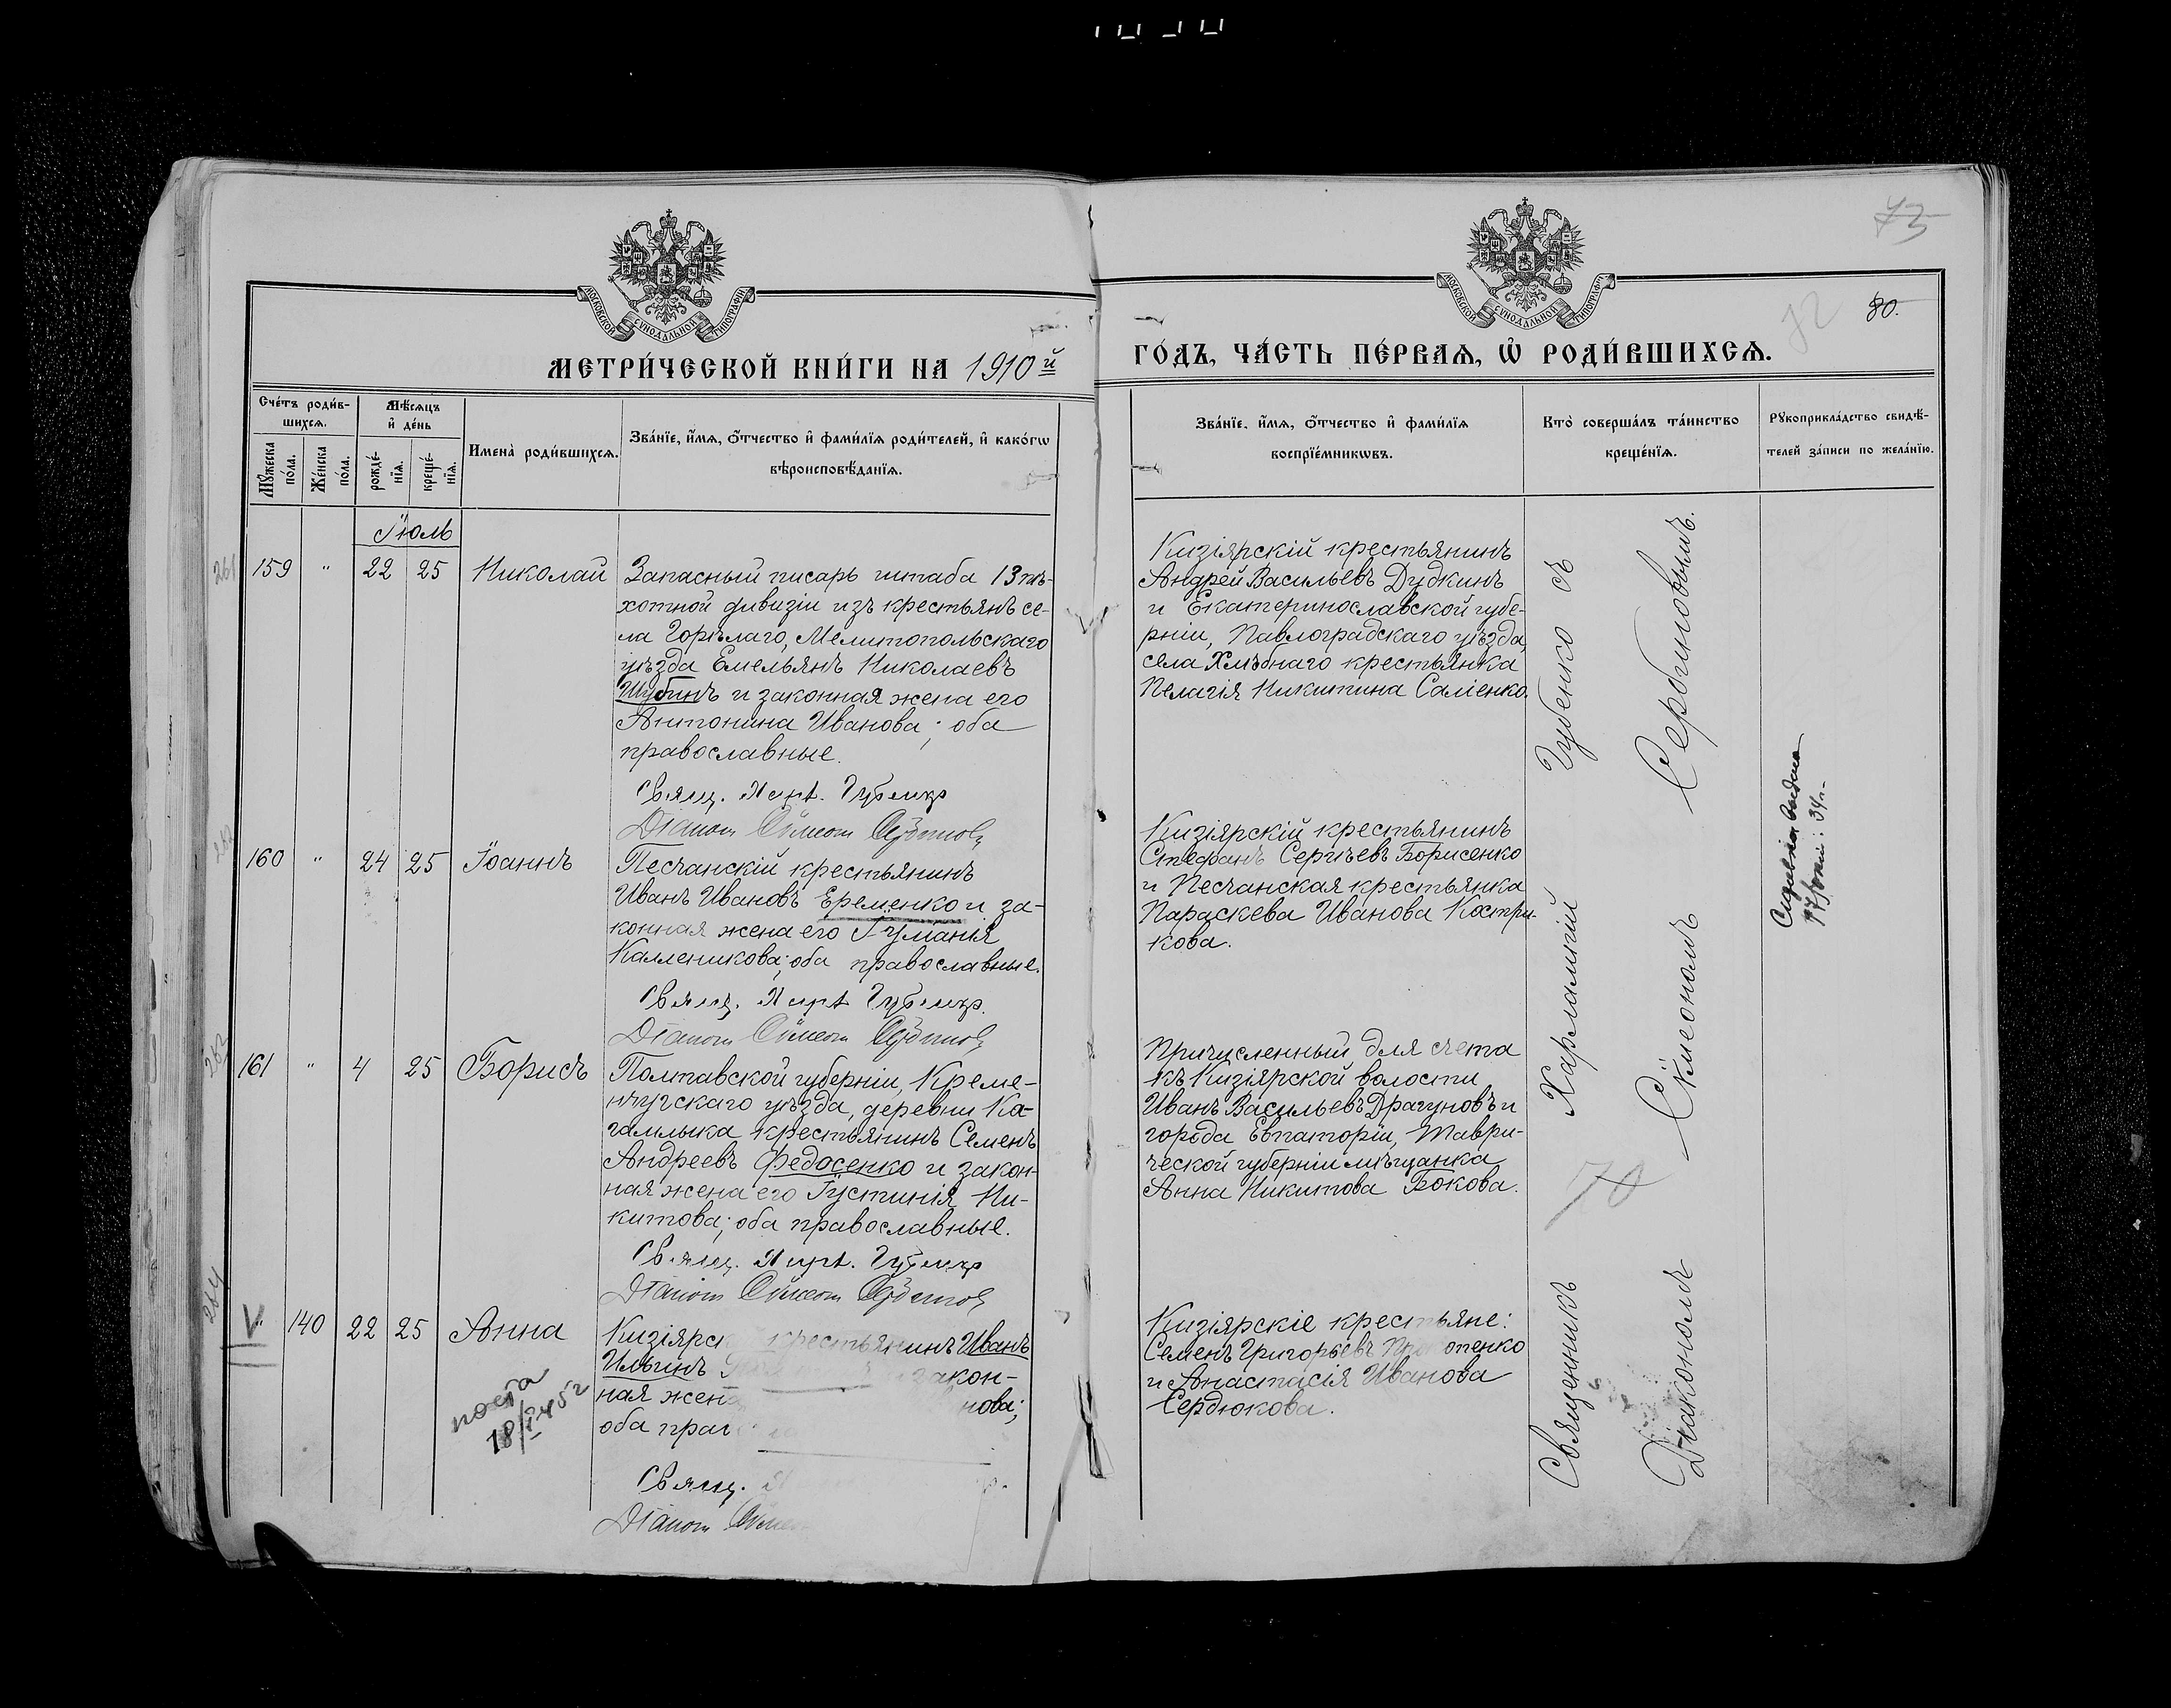 73
82
80.
МОСКОВСКОЙ СѴНОДАЛЬНОЙ ТИПОГРАФІИ
МОСКОВСКОЙ СѴНОДАЛЬНОЙ ТИПОГРАФІИ
МЕТРИ́ЧЕСКОЙ КНИ́ГИ НА 1910й
ГО́ДЪ, ЧА́СТЬ ПЕ́РВАѦ, Ѽ РОДИ́ВШИХСѦ.
Сче́тъ роди́в-
шихсѧ.
Мꙋ́жеска по́ла.
Же́нска по́ла.
Мѣ́сѧцъ
и҆ де́нь
рожде́-нїѧ.
креще́-нїѧ.
Имена̀ роди́вшихсѧ.
Зва́нїе, и҆́мѧ, ѻ҆́тчество и҆ фами́лїѧ роди́телей, и҆ како́гѡ
вѣроисповѣ́данїѧ.
Зва́нїе, и҆́мѧ, ѻ҆́тчество и҆ фами́лїѧ
воспрїе́мникѡвъ.
Кто̀ соверша́лъ та́инство
креще́нїѧ.
Рꙋкоприкла́дство свидѣ́-
телей за́писи по жела́нїю.
Іюль
261
159 " 22 25 Николай
Запасный писарь штаба 13 пѣ-
хотной дивизіи изъ крестьянъ се-
ла Горѣлаго, Мелитопольскаго
уѣзда Емельянъ Николаевъ
Шубинъ и законная жена его
Антонина Иванова; оба
православные.
Свящ. Харл. Губенко
Діакон Сѵмеон Сербинов
Кизіярскій крестьянинъ
Андрей Васильевъ Дудкинъ
и Екатеринославской губе-
рніи, Павлоградскаго уѣзда,
села Хлѣбнаго крестьянка
Пелагія Никитина Саліенко.
262
160 " 24 25 Іоаннъ
Песчанскій крестьянинъ
Иванъ Ивановъ Еременко и за-
конная жена его Іуліанія
Каллиникова; оба православные.
Свящ. Харл. Губенко.
Діакон Сѵмеон Сербинов
Кизіярскій крестьянинъ
Стефанъ Сергѣевъ Борисенко
и Песчанская крестьянка
Параскева Иванова Костри-
кова.
263
161 " 4 25 Борисъ
Полтавской губерніи, Креме-
нчугскаго уѣзда, деревни Ка-
гамлыка крестьянинъ Семенъ
Андреевъ Федосенко и закон-
ная жена его Іустинія Ни-
китова; оба православные.
Свящ. Харл. Губенко
Діакон Сѵмеон Сербинов
Причисленный для счета
къ Кизіярской волости
Иванъ Васильевъ Драгуновъ и
города Евпаторіи, Таври-
ческой губерніи мѣщанка
Анна Никитова Бокова.
264
V " 140 22 25 Анна
Кизіярск крестьянинъ Иванъ
Ильинъ закон-
ная жен нова;
оба прав
Свящ.
Діакон Сѵмеон
Кизіярскіе крестьяне:
Семенъ Григорьевъ Прокопенко
и Анастасія Иванова
Сердюкова.
Священникъ Харлампій Губенко съ
Діакономъ Сѵмеономъ Сербиновымъ.
70